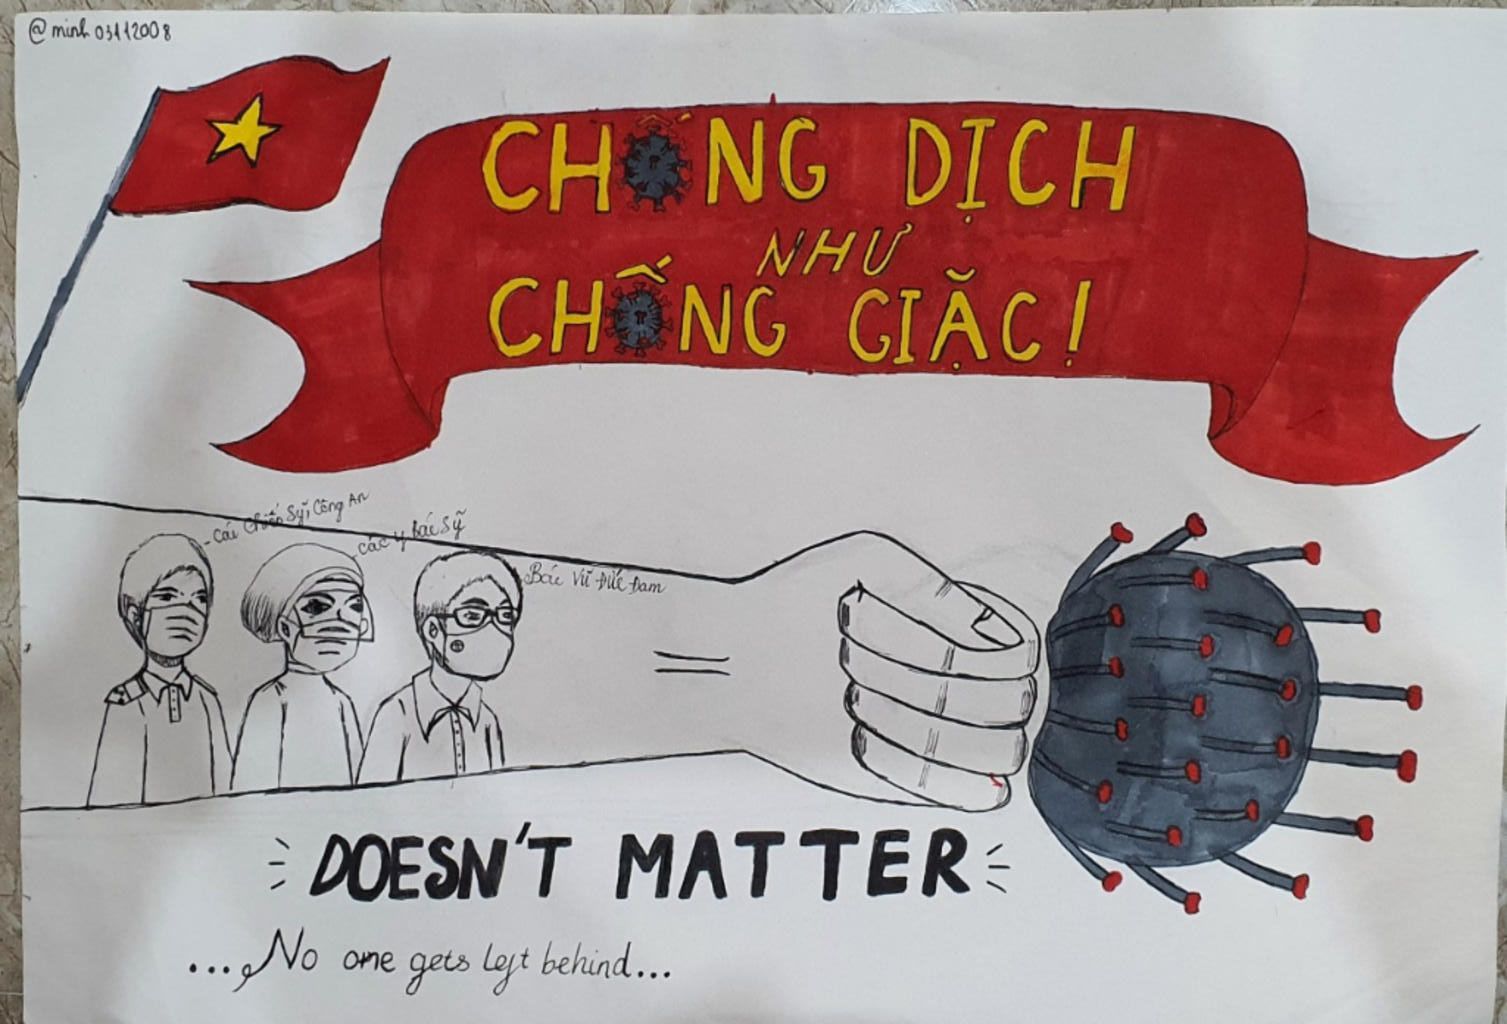 @minh03112008
CHỐNG DỊCH
NHƯ
CHỐNG GIẶC!
Các Chiến Sỹ, Công An
Các Y Bác Sỹ
Bác Vũ Đức Đam
DOESN'T MATTER
...No one gets left behind...